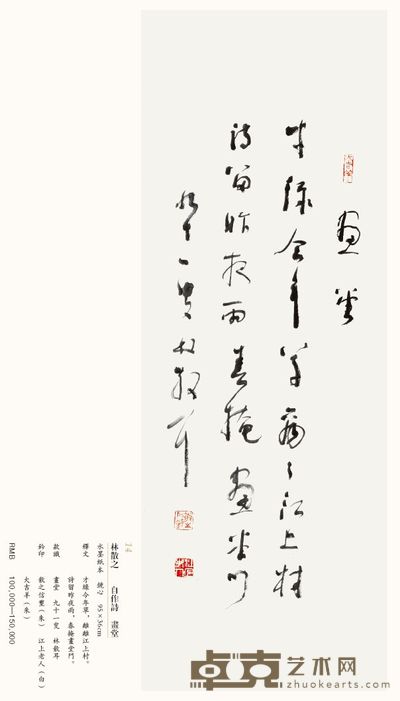 畫堂
才綠今年草離々江上村
詩留昨夜雨春掩畫堂門
九十一叟林散耳
14
林散之 自作詩 畫堂
水墨紙本 鏡心 95×36cm
釋文 才綠今年草，離離江上村。
詩留昨夜雨，春掩畫堂門。
款識 畫堂 九十一叟 林散耳
鈐印 散之信璽（朱） 江上老人（白）
大吉羊（朱）
RMB 100,000—150,000
卓克艺术网
zhuokearts.com